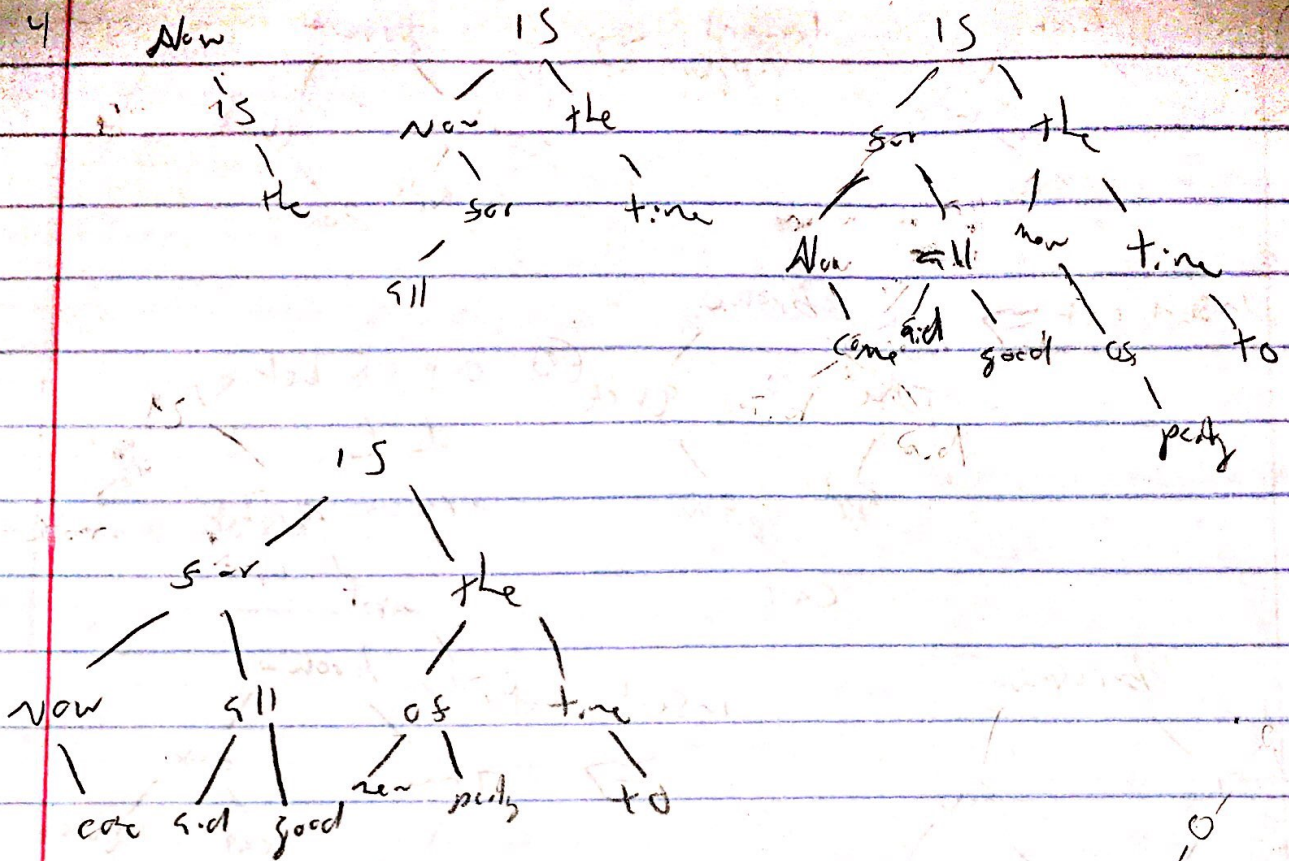 4 Now IS IS
is Now the for the
the for time Now all men time
all come aid good of to
party
IS
for the
Now all of time
come aid good men party to
0